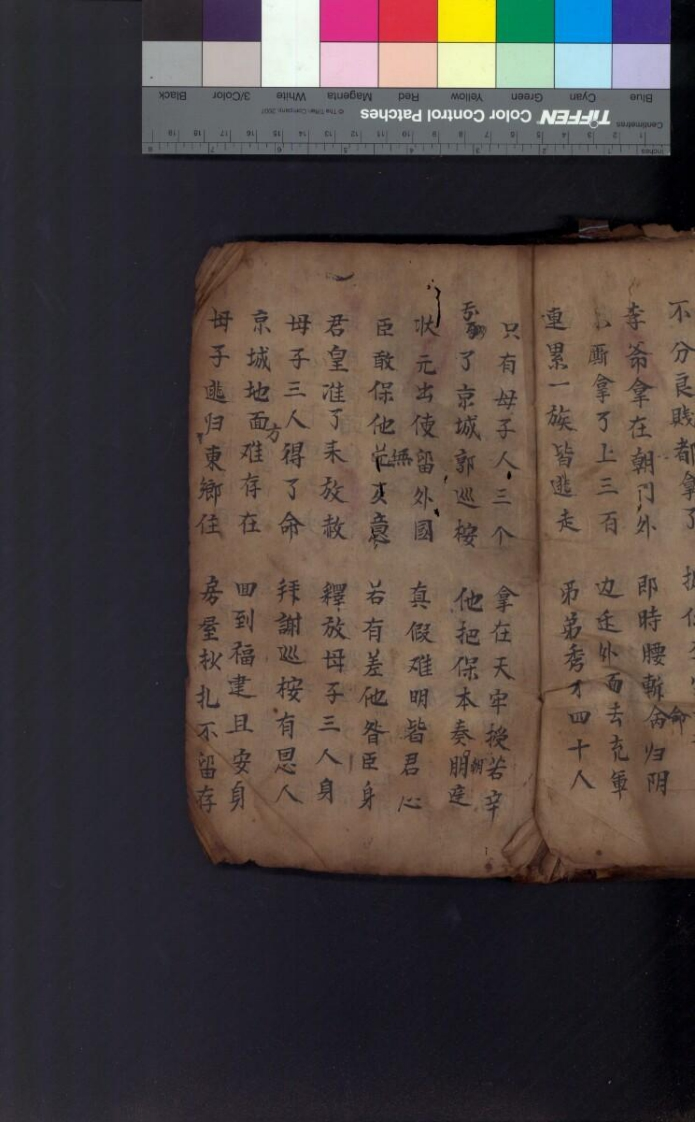 Blue Cyan Green Yellow Red Magenta White 3/Color Black
TIFFEN Color Control Patches © The Tiffen Company, 2007
Centimetres
Inches
不分良賤都拿了
李爺拿在朝门外 即時腰斬命归阴
断拿了上三百 边迁外面去充軍
連累一族皆逃走 弟秀才四十人
只有母子人三个 拿在天牢挨若辛
了京城郭巡桉 他把保本奏朝廷
状元出使留外國 真假难明皆君心
臣敢保他無意 若有差他昝臣身
君皇准了来放赦 釋放母子三人身
母子三人得了命 拜謝巡桉有恩人
京城地面方难存在 回到福建且安身
母子逃归東鄉住 房屋杦扎不留存